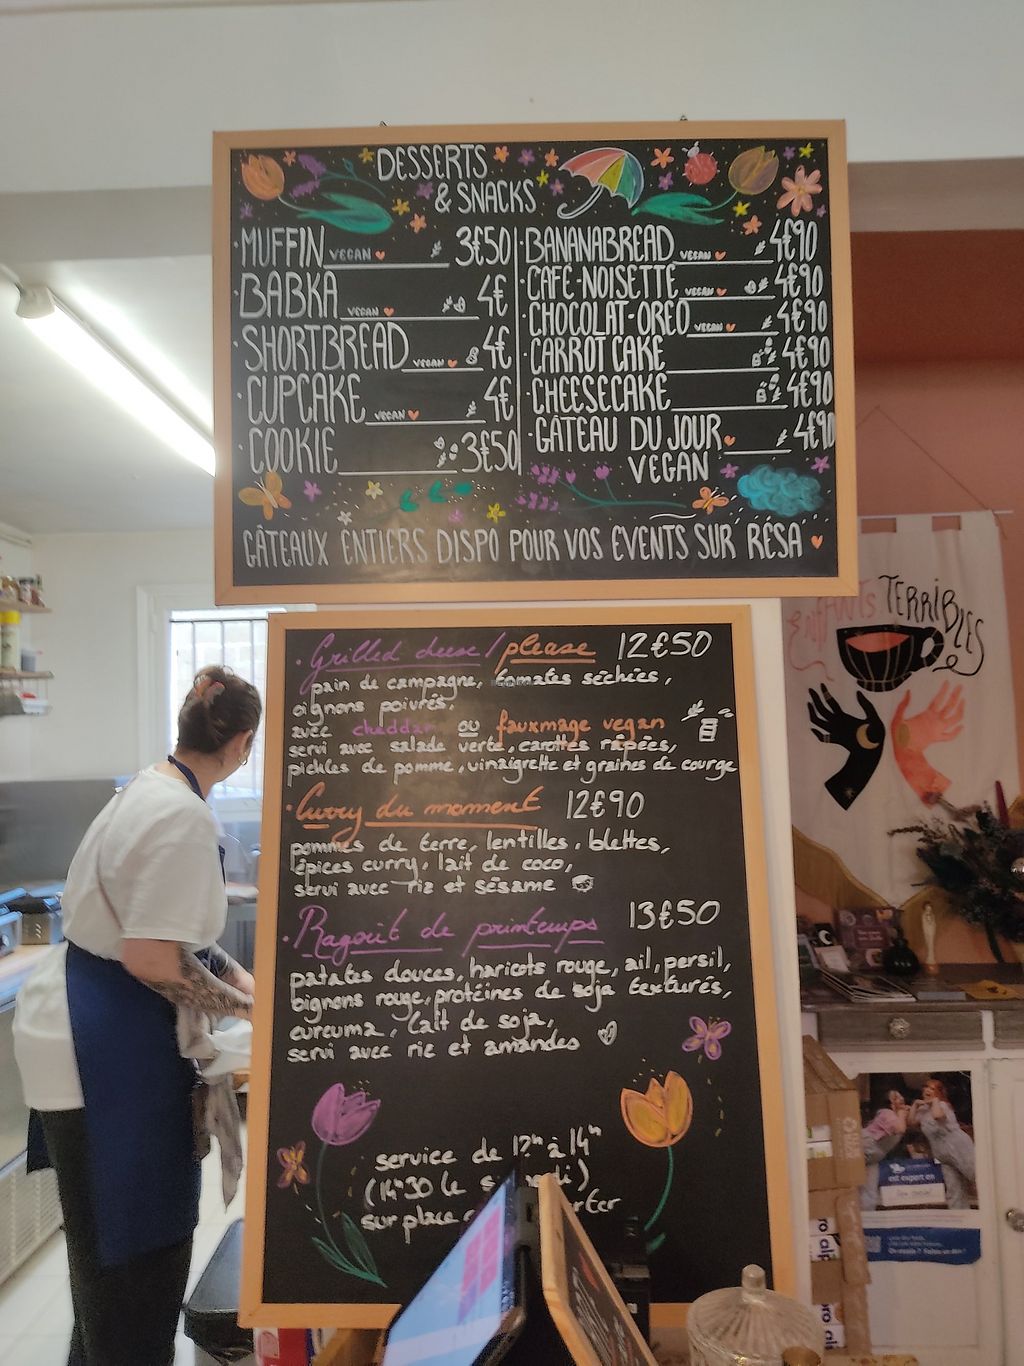 DESSERTS
& SNACKS
·MUFFIN VEGAN 3€50
·BABKA VEGAN 4€
·SHORTBREAD VEGAN 4€
·CUPCAKE VEGAN 4€
·COOKIE 3€50
·BANANABREAD VEGAN 4€90
·CAFÉ-NOISETTE VEGAN 4€90
·CHOCOLAT-OREO VEGAN 4€90
·CARROT CAKE 4€90
·CHEESECAKE 4€90
·GÂTEAU DU JOUR 4€90
VEGAN
GÂTEAUX ENTIERS DISPO POUR VOS EVENTS SUR RÉSA
·Grilled cheese / please 12€50
pain de campagne, tomates séchées,
oignons poivrés,
avec cheddar ou fauxmage vegan
servi avec salade verte, carottes râpées,
pickles de pomme, vinaigrette et graines de courge
·Curry du moment 12€90
pommes de terre, lentilles, blettes,
épices curry, lait de coco,
servi avec riz et sésame
·Ragoût de printemps 13€50
patates douces, haricots rouge, ail, persil,
oignons rouge, protéines de soja texturés,
curcuma, lait de soja,
servi avec riz et amandes
service de 12h à 14h
(14h30 le
sur place
ENFANTS TERRIBLES
est expert en